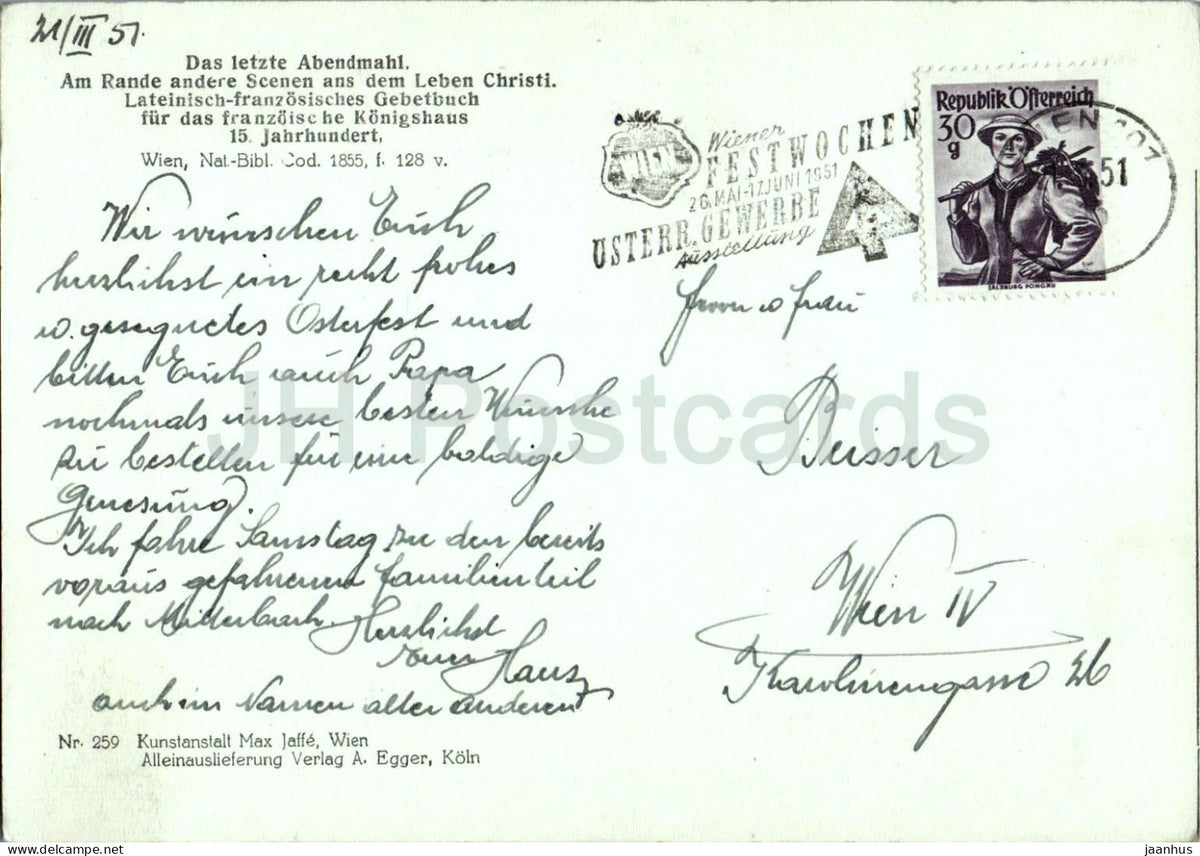 21/III 51.
Das letzte Abendmahl.
Am Rande andere Scenen ans dem Leben Christi.
Lateinisch-französisches Gebetbuch
für das franzöische Königshaus
15. Jahrhundert,
Wien, Nat.-Bibl. Cod. 1855, f. 128 v.
Wir wünschen Euch
herzlichst ein recht frohes
u. gesegnetes Osterfest und
bitten Euch auch Papa
nochmals unsere besten Wünsche
zu bestellen für eine baldige
Genesung.
Ich fahre Samstag zu den bereits
voraus gefahrenen Familienteil
nach Mitterbach. Herzlichst
Euer Hans
auch im Namen aller anderen
Nr. 259 Kunstanstalt Max Jaffé, Wien
Alleinauslieferung Verlag A. Egger, Köln
WIEN
Wiener
FESTWOCHEN
26. MAI-17. JUNI 1951
ÖSTERR. GEWERBE
Ausstellung
Republik Österreich
30
g
SALZBURG PONGAU
51
Herrn u Frau
Beisser
Wien IV
Karolinengasse 26
JH Postcards
www.hippostcard.com
jaanhus